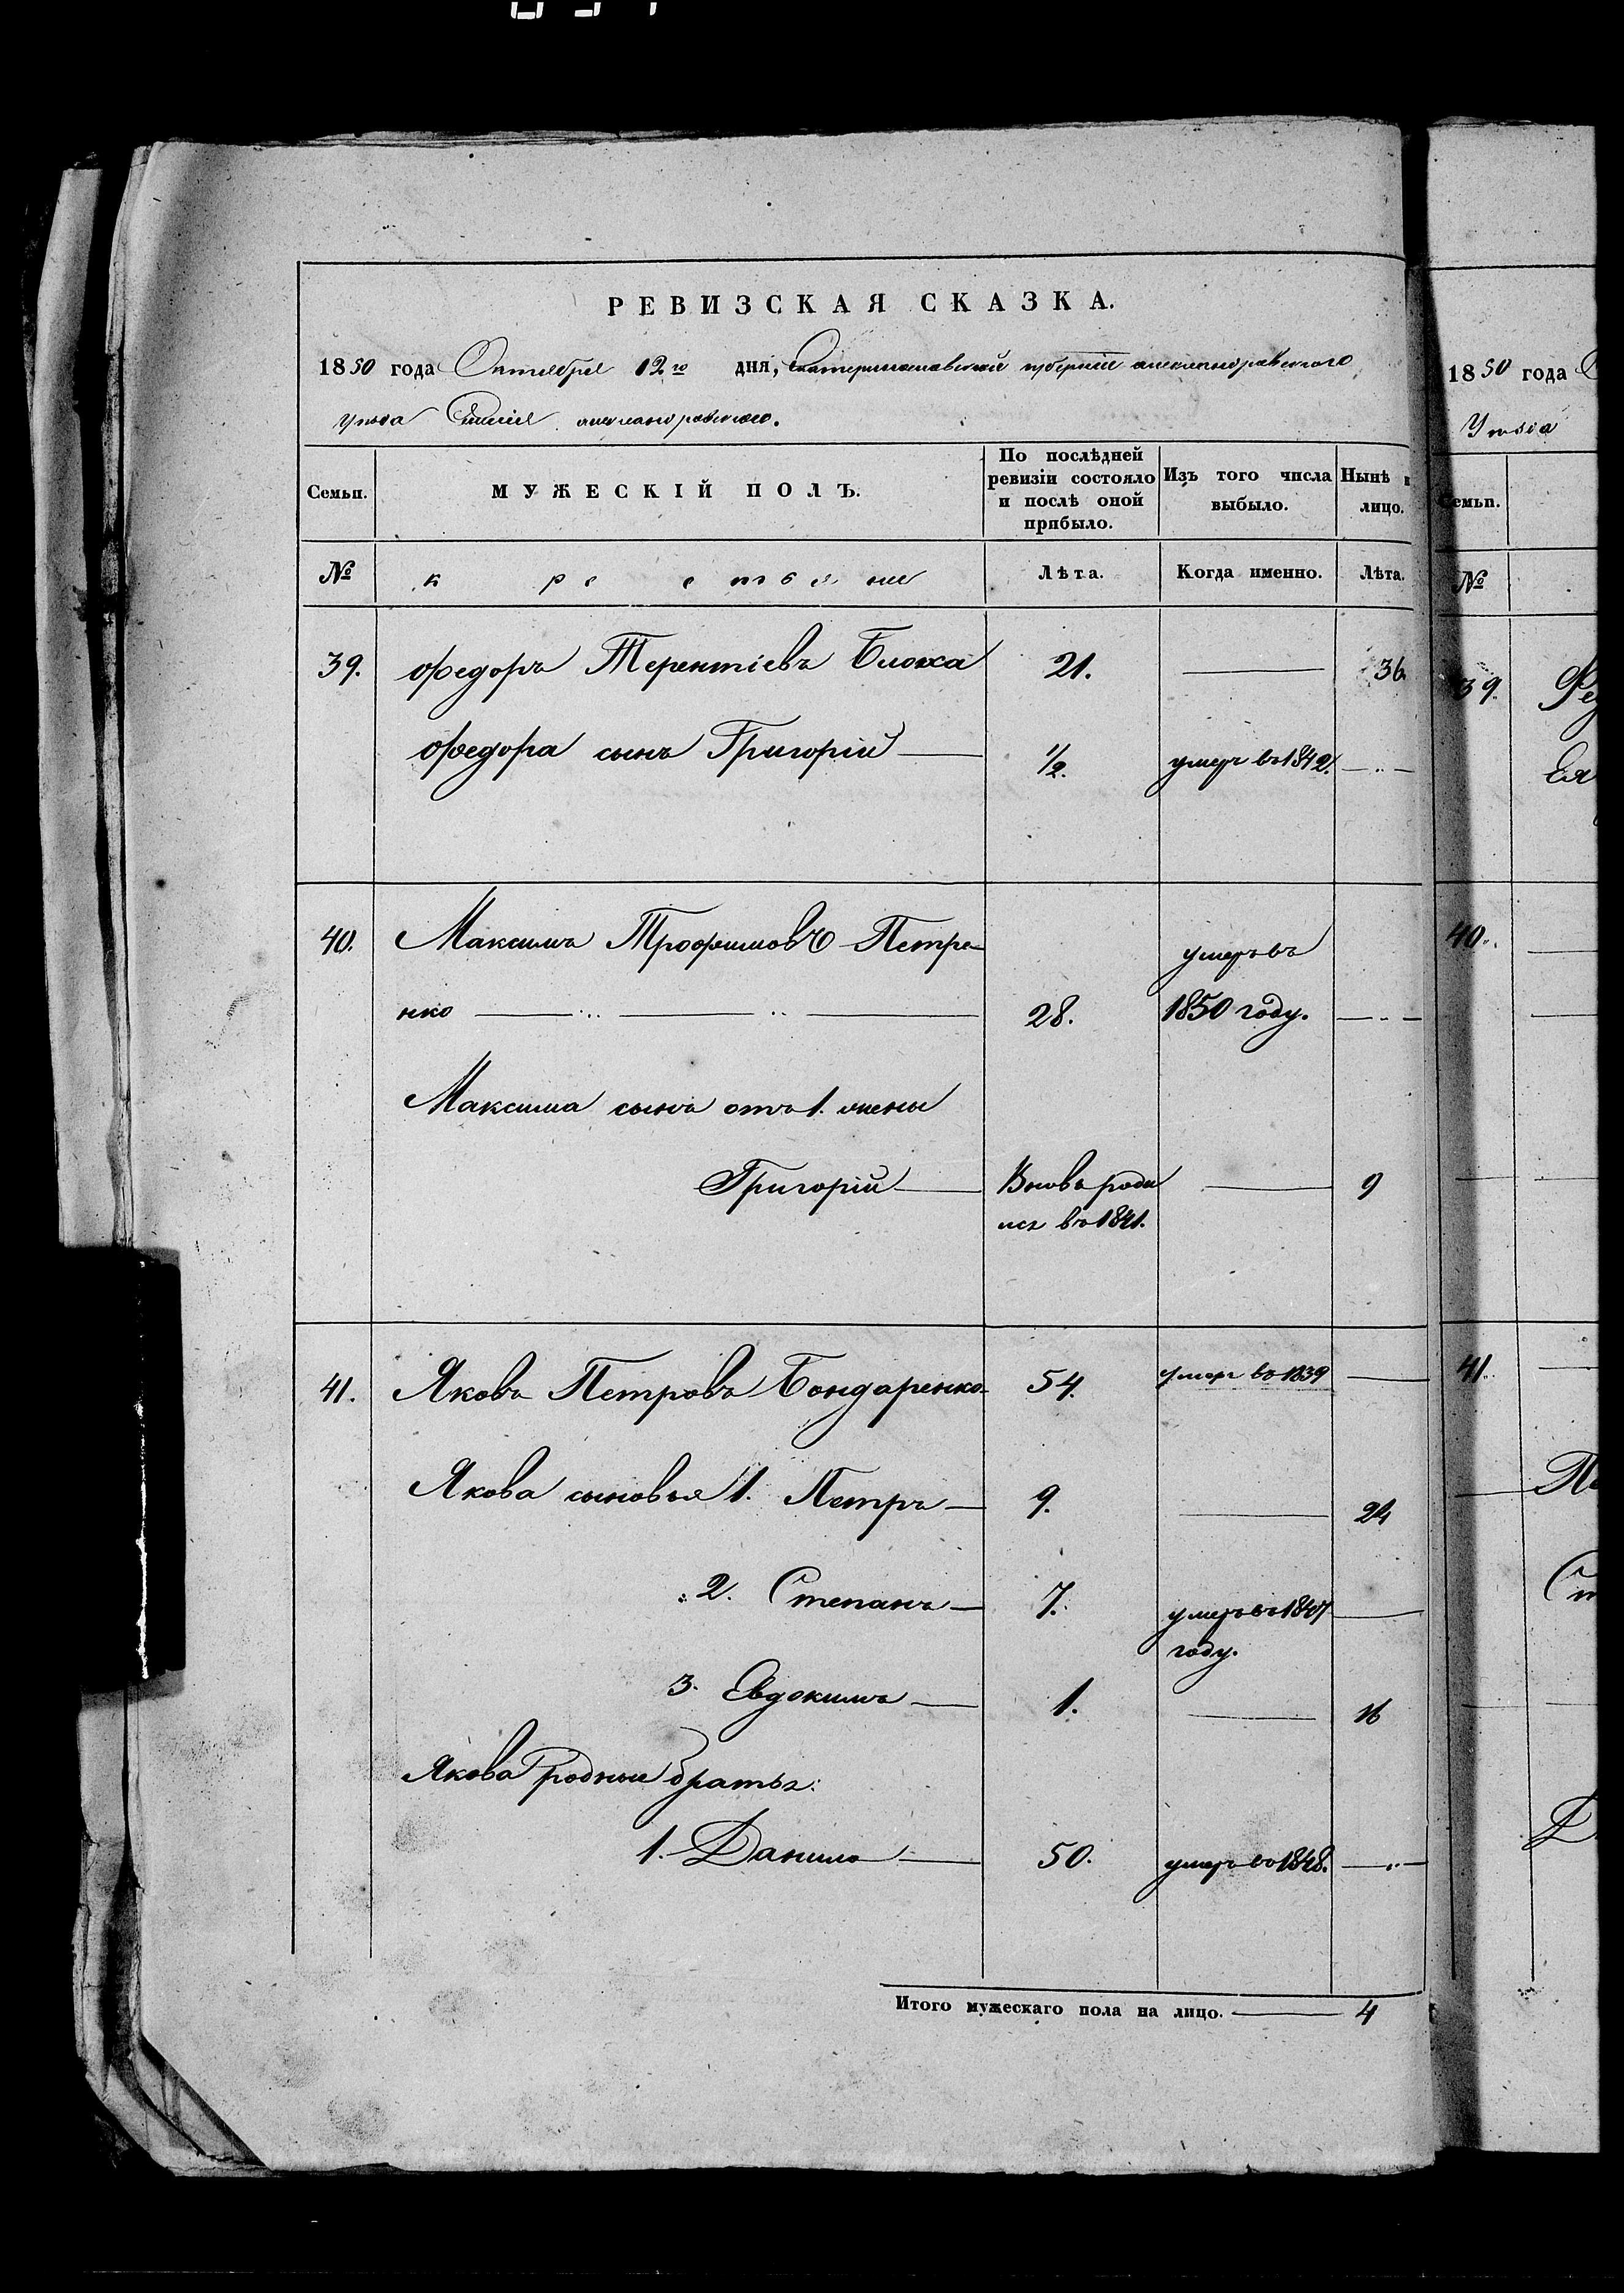 РЕВИЗСКАЯ СКАЗКА.
1850 года Октября 12го дня, Екатеринославской губернии александровского
Уезда имения александровского.
Семьи. МУЖЕСКІЙ ПОЛЪ. По послѣдней ревизіи состояло и послѣ оной прибыло. Изъ того числа выбыло. Нынѣ лицо.
№ крестьяне Лѣта. Когда именно. Лѣта.
39. Федоръ Терентіевъ Блоха 21. 36.
Федора сынъ Григорій 1/2. умеръ въ 1842.
40. Максимъ Трофимовъ Петре-
нко 28. умеръ въ
1850 году.
Максима сынъ отъ 1. жены
Григорій Вновь роди 9
лся въ 1841.
41. Яковъ Петровъ Бондаренко 54. умеръ въ 1839
Якова сыновья 1. Петръ 9. 24
2. Степанъ 7. умеръ въ 1847
году.
3. Евдокимъ 1. 16
Якова родные братья:
1. Данило 50. умеръ въ 1848.
Итого мужескаго пола на лицо. 4
1850 года
Уезда
Семьи.
№
39.
40.
41.